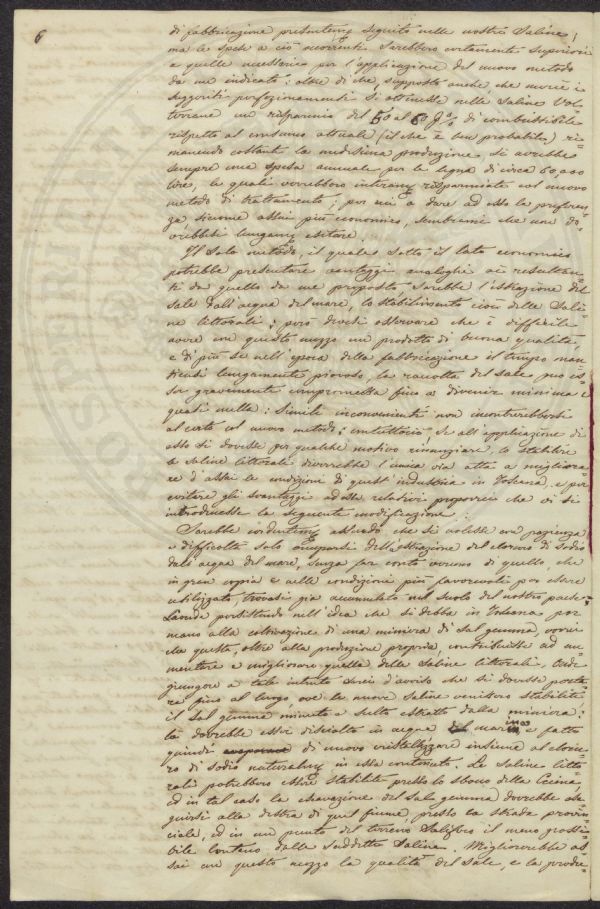 6
di fabbricazione presentemᵉ seguito nelle nostre Saline;
ma le spese a ciò occorrenti sarebbero certamente superiori
a quelle necessarie per l'applicazione del nuovo metodo
da me indicato: oltre di che, supposto anche, che mercè i
suggeriti perfezionamenti si ottenesse nelle Saline Vol-
terrane un risparmio del 50 al 60 p% di combustibile
rispetto al consumo attuale (il che è ben probabile) ri-
manendo costante la medesima produzione si avrebbe
sempre una spesa annuale per le legna di circa 60,000
lire, le quali verrebbero interamᵉ risparmiate col nuovo
metodo di trattamento; per cui a dare ad esso la preferen-
za, siccome assai più economico, sembrami che non do-
vrebbesi lungamᵉ esitare.
Il solo metodo, il quale sotto il lato economico
potrebbe presentare vantaggi analoghi ai resultan-
ti da quello da me proposto, sarebbe l'estrazione del
sale dall'acqua del mare, lo stabilimento cioè delle Sali-
ne littorali; però devesi osservare che è difficile
avere con questo mezzo un prodotto di buona qualità,
e di più se nell'epoca della fabbricazione il tempo man-
tiensi lungamente piovoso, la raccolta del sale può es-
ser gravemente compromessa fino a divenir minima e
quasi nulla: Simili inconvenienti non incontrerebbersi
al certo col nuovo metodo; contuttociò, se all'applicazione di
esso si dovesse per qualche motivo rinunziare, lo stabilire
le saline littorali diverrebbe l'unica via atta a migliora-
re d'assai le condizioni di quest'industria in Toscana, e per
evitare gli svantaggi ad esse relativi proporrei che vi si
introducesse la seguente modificazione:
Sarebbe evidentemᵉ assurdo che si volesse con pazienza
e difficoltà solo occuparsi dell'estrazione del cloruro di sodio
dall'acqua del mare, senza far conto veruno di quello, che
in gran copia e nelle condizioni più favorevoli per essere
utilizzato, trovasi già accumulato nel suolo del nostro paese.
Laonde persistendo nell'idea che si debba in Toscana por
mano alla coltivazione di una miniera di sal gemma, vorrei
che questa, oltre alla produzione propria, contribuisse ad au-
mentare e migliorare quella delle Saline littorali. Onde
giungere a tale intento sarei d'avviso che si dovesse porta-
re fino al luogo, ove le nuove saline venissero stabilite
il sal gemma minuto e scelto estratto dalla miniera:
là dovrebbe esser disciolto in acqua del marina e fatto
quindi evaporare di nuovo cristallizzare insieme al cloru-
ro di sodio naturalmᵉ in essa contenuto. Le Saline litto-
rali potrebbero essere stabilite presso lo sbocco della Cecina,
ed in tal caso la escavazione del sale gemma dovrebbe ese-
guirsi alla destra di quel fiume, presso la strada provin-
ciale, ed in un punto del terreno Salifero il meno possi-
bile lontano dalle suddette Saline. Migliorerebbe as-
sai con questo mezzo la qualità del sale, e la produ-